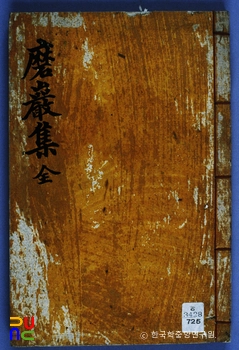 磨巖集 全
3428
725
© 한국학중앙연구원